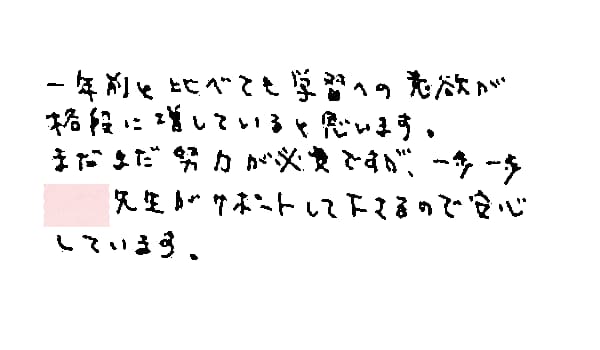 一年前と比べても学習への意欲が
格段に増していると思います。
まだまだ努力が必要ですが、一歩一歩
先生がサポートして下さるので安心
しています。